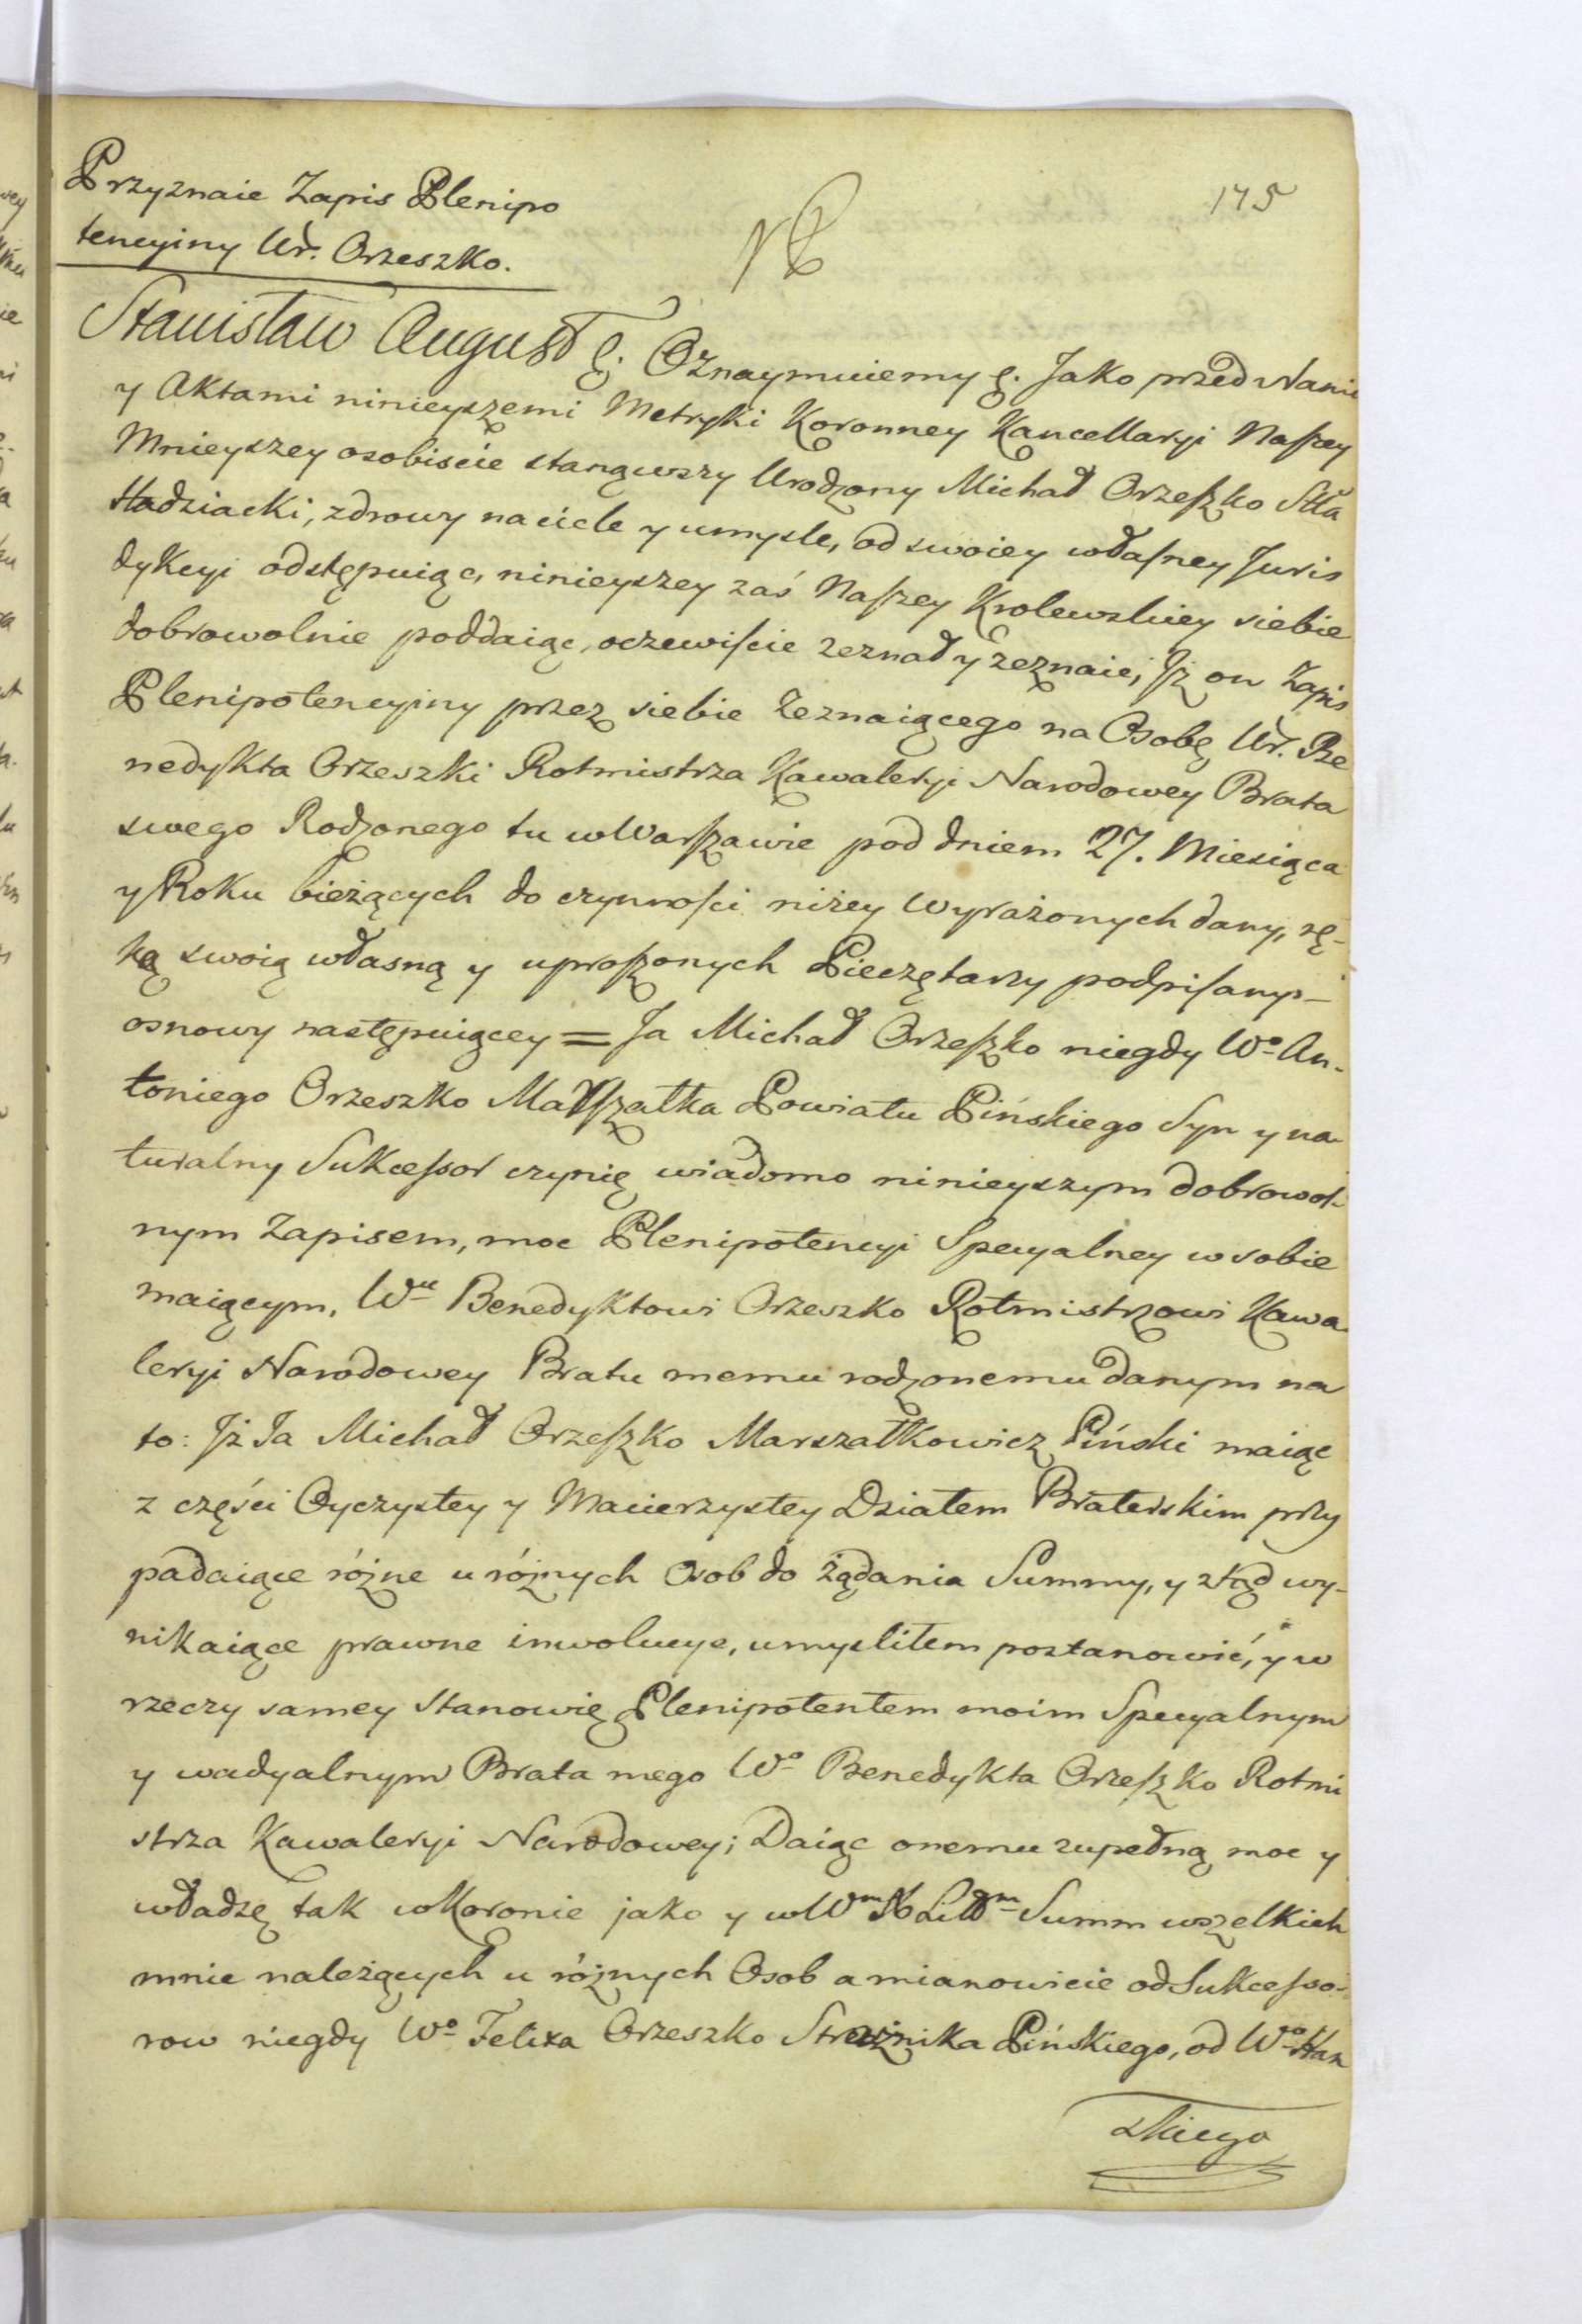 175
Przyznaie Zapis Plenipo
tencyiny Ur. Orzeszko.
Stanisław August &. Oznaymuiemy &. Jako przed Nami
y Aktami ninieyszemi Metryki Koronney Kancellaryi Naszey
Mnieyszey osobiscie stanąwszy Urodzony Michał Orzeszko Sta
Hadziacki, zdrowy na ciele y umysle, od swoiey własney Juris
dykcyi odstępuiąc, ninieyszey zaś Naszey Krolewskiey siebie
dobrowolnie poddaiąc, oczewiscie zeznał y zeznaie, Jż on Zapis
Plenipotencyiny przez siebie Zeznaiącego na Osobę Ur. Be
nedykta Orzeszki Rotmistrza Kawaleryi Narodowey Brata
swego Rodzonego tu w Warszawie pod dniem 27. Miesiąca
y Roku bieżących do czynności niżey wyrażonych dany, rę-
ką swoią własną y uproszonych Pieczętarzy podpisany-
osnowy następuiącey = Ja Michał Orzeszko niegdy Wo An-
toniego Orzeszko Marszałka Powiatu Pińskiego Syn y na-
turalny Sukcessor czynię wiadomo ninieyszym dobrowol-
nym Zapisem, moc Plenipotencyi Specyalney w sobie
maiącym, Wu Benedyktowi Orzeszko Rotmistrzowi Kawa-
leryi Narodowey Bratu memu rodzonemu danym na
to: Jż Ja Michał Orzeszko Marszałkowicz Piński maiąc
z części Oyczystey y Macierzystey Działem Braterskim przy
padaiące różne u różnych Osob do żądania Summy, y ztąd wy-
nikaiące prawne inwolucye, umysliłem postanowić, y w
rzeczy samey stanowię Plenipotentem moim Specyalnym
y wadyalnym Brata mego Wo Benedykta Orzeszko Rotmi
strza Kawaleryi Narodowey; Daiąc onemu zupełną moc y
władzę tak w Koronie jako y w Wm X Littm Summ wszelkich
mnie należących u różnych Osob a mianowicie od Sukcesso-
row niegdy Wo Felixa Orzeszko Strażnika Pińskiego, od Wo